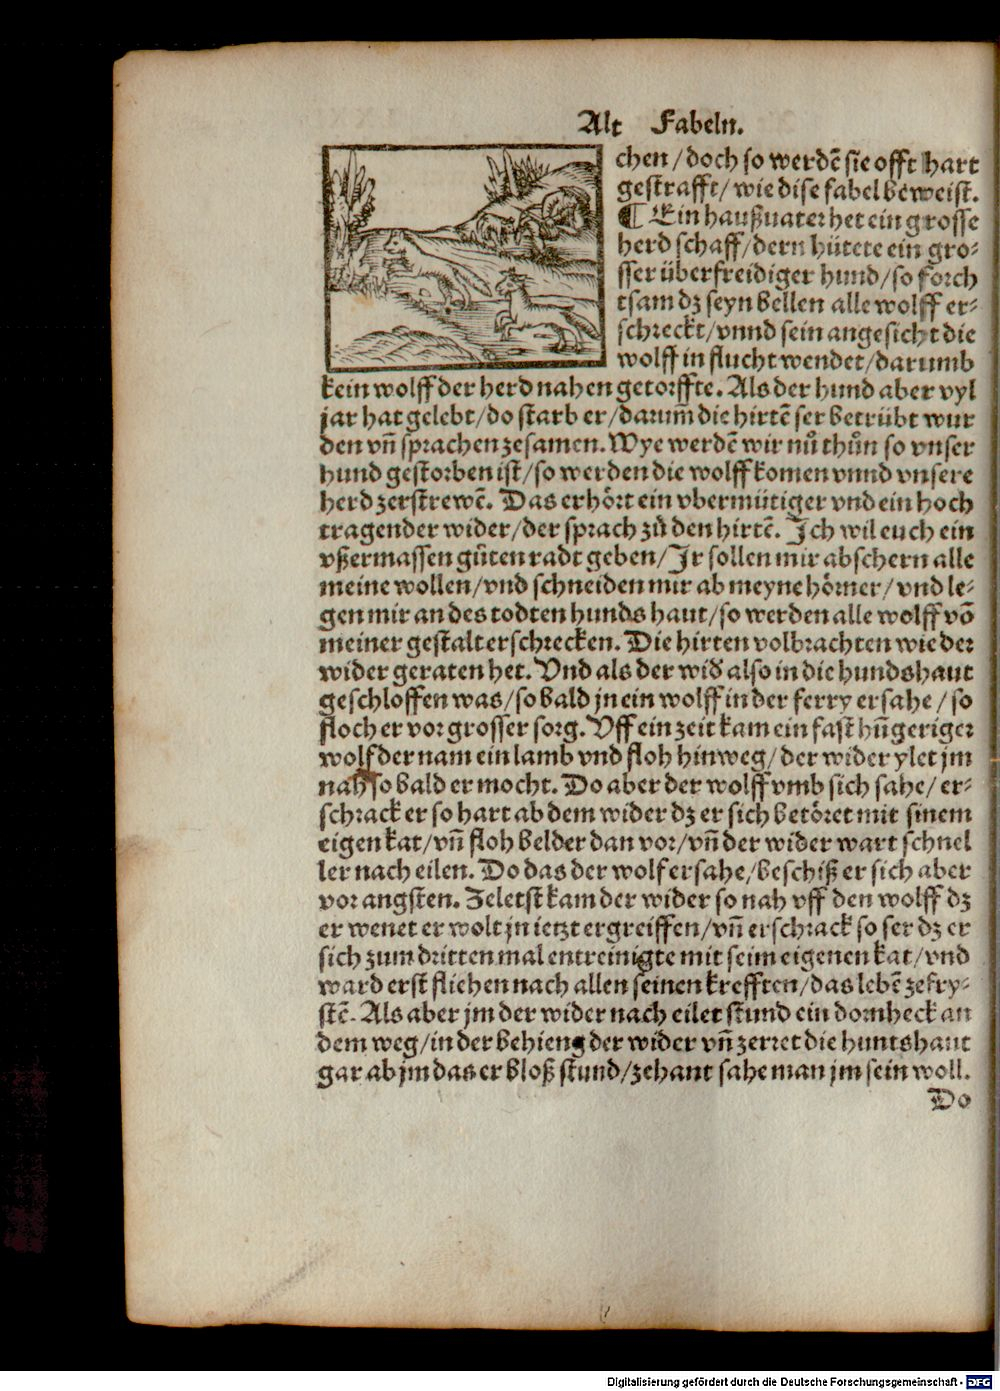 Alt Fabeln.
chen/doch so werdẽ sie offt hart
gestrafft/wie dise fabel beweist.
¶ Ein haußuater het ein grosse
herd schaff/dern hütete ein gro⸗
sser überfreidiger hund/so forch
tsam dz seyn bellen alle wolff er⸗
schreckt/vnnd sein angesicht die
wolff in flucht wendet/darumb
kein wolff der herd nahen getorffte. Als der hund aber vyl
jar hat gelebt/do starb er/darum̃ die hirtẽ ser betrübt wur
den vñ sprachen zesamen. Wye werdẽ wir nů thůn so vnser
hund gestorben ist/so werden die wolff komen vnnd vnsere
herd zerstrewẽ. Das erhört ein vbermütiger vnd ein hoch
tragender wider/der sprach zů den hirtẽ. Jch wil euch ein
vßermassen gůten radt geben/Jr sollen mir abschern alle
meine wollen/vnd schneiden mir ab meyne hörner/vnd le⸗
gen mir an des todten hunds haut/so werden alle wolff võ
meiner gestalt erschrecken. Die hirten volbrachten wie der
wider geraten het. Vnd als der wid̃ also in die hundshaut
geschloffen was/so bald jn ein wolff in der ferry ersahe/so
floch er vor grosser sorg. Vff ein zeit kam ein fast hũgeriger
wolf der nam ein lamb vnd floh hinweg/der wider ylet jm
nah so bald er mocht. Do aber der wolff vmb sich sahe/er⸗
schrack er so hart ab dem wider dz er sich betöret mit sinem
eigen kat/vñ floh belder dan vor/vñ der wider wart schnel
ler nach eilen. Do das der wolf ersahe/beschiß er sich aber
vor angsten. Zeletst kam der wider so nah vff den wolff dz
er wenet er wolt jn ietzt ergreiffen/vñ erschrack so ser dz er
sich zum dritten mal entreinigte mit seim eigenen kat/vnd
ward erst fliehen nach allen seinen krefften/das lebẽ zefry⸗
stẽ. Als aber jm der wider nach eilet stund ein dornheck an
dem weg/in der behieng der wider vñ zerret die huntshaut
gar ab jm das er bloß stund/zehant sahe man jm sein woll.
Do
Digitalisierung gefördert durch die Deutsche Forschungsgemeinschaft - DFG